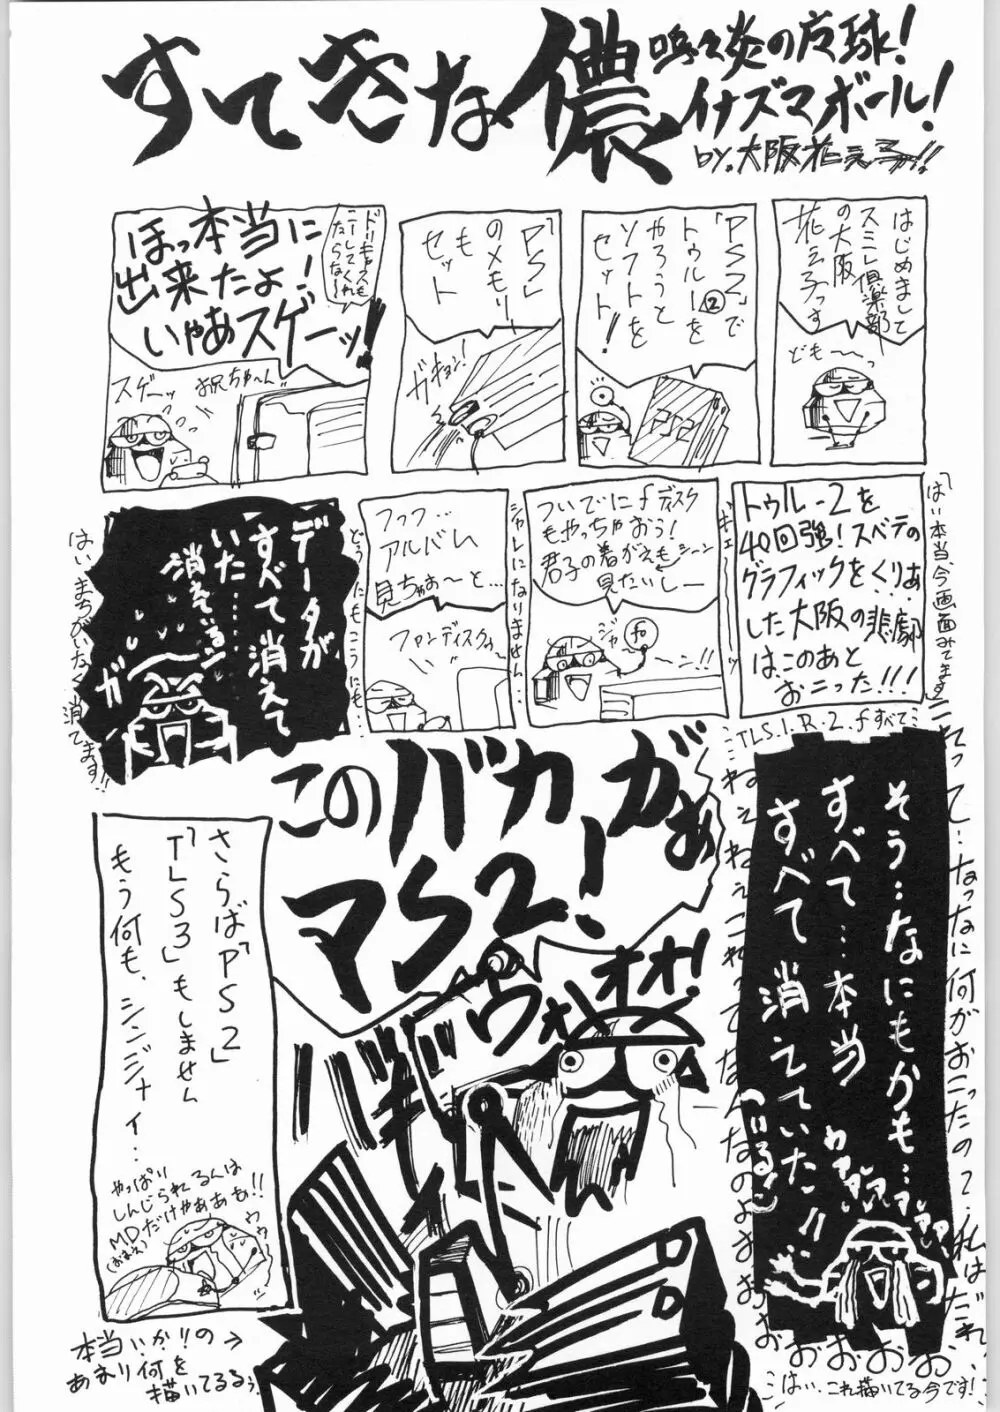 すてきな儂
嗚々炎の庭球!
イナズマボール!
by.大阪花え子っ!!
はじめまして
スミレ倶楽部
の大阪
花え子っす
ども〜っ
「PS2」で
トゥルー②を
やろうと
ソフトを
セット!
PS2
「PS」
のメモリ
も
セット
ガキョン!
ほっ本当に
出来たよ!
いやあスゲーッ!!
スゲーッ
お兄ちゃ〜ん
トゥルー2を
40回強!スベテの
グラフィックをくりあ
した大阪の悲劇
はこのあと
おこった!!!
ついでにfディスク
もやっちゃおう!
君子の着がえもシーン
見たいしー
ジャ
fo
ーン!!
シャレになりません…
フッフ…
アルバム
見ちゃお〜と…
ファンディスクの〜
どうにもこうにも…
データが
すべて消えて
いた……
消えているジ
ガ
はい、まちがいなく消てます!!
「はい本当、今画面みてます」
…TLS.1.R.2.fすべて…
そう…なにもかも…
すべて…本当
すべて消えていた!!
(いるジ)
これって…なってなに何がおこったの?私はだれ
ねぇねぇねぇこれってなんなのよさおおおおおおお
このバカがぁ
マS2!
ヴォオオ!
さらば「PS2」
「TLS3」もしません
もう何も、シンジナイ…
やっぱり
しんじられるんは
MDだけやああも!!
(おまえ)
ウゥ
本当いかりの→
あまり何を
描いてるぅ、
…はい…これ描いてる今です!